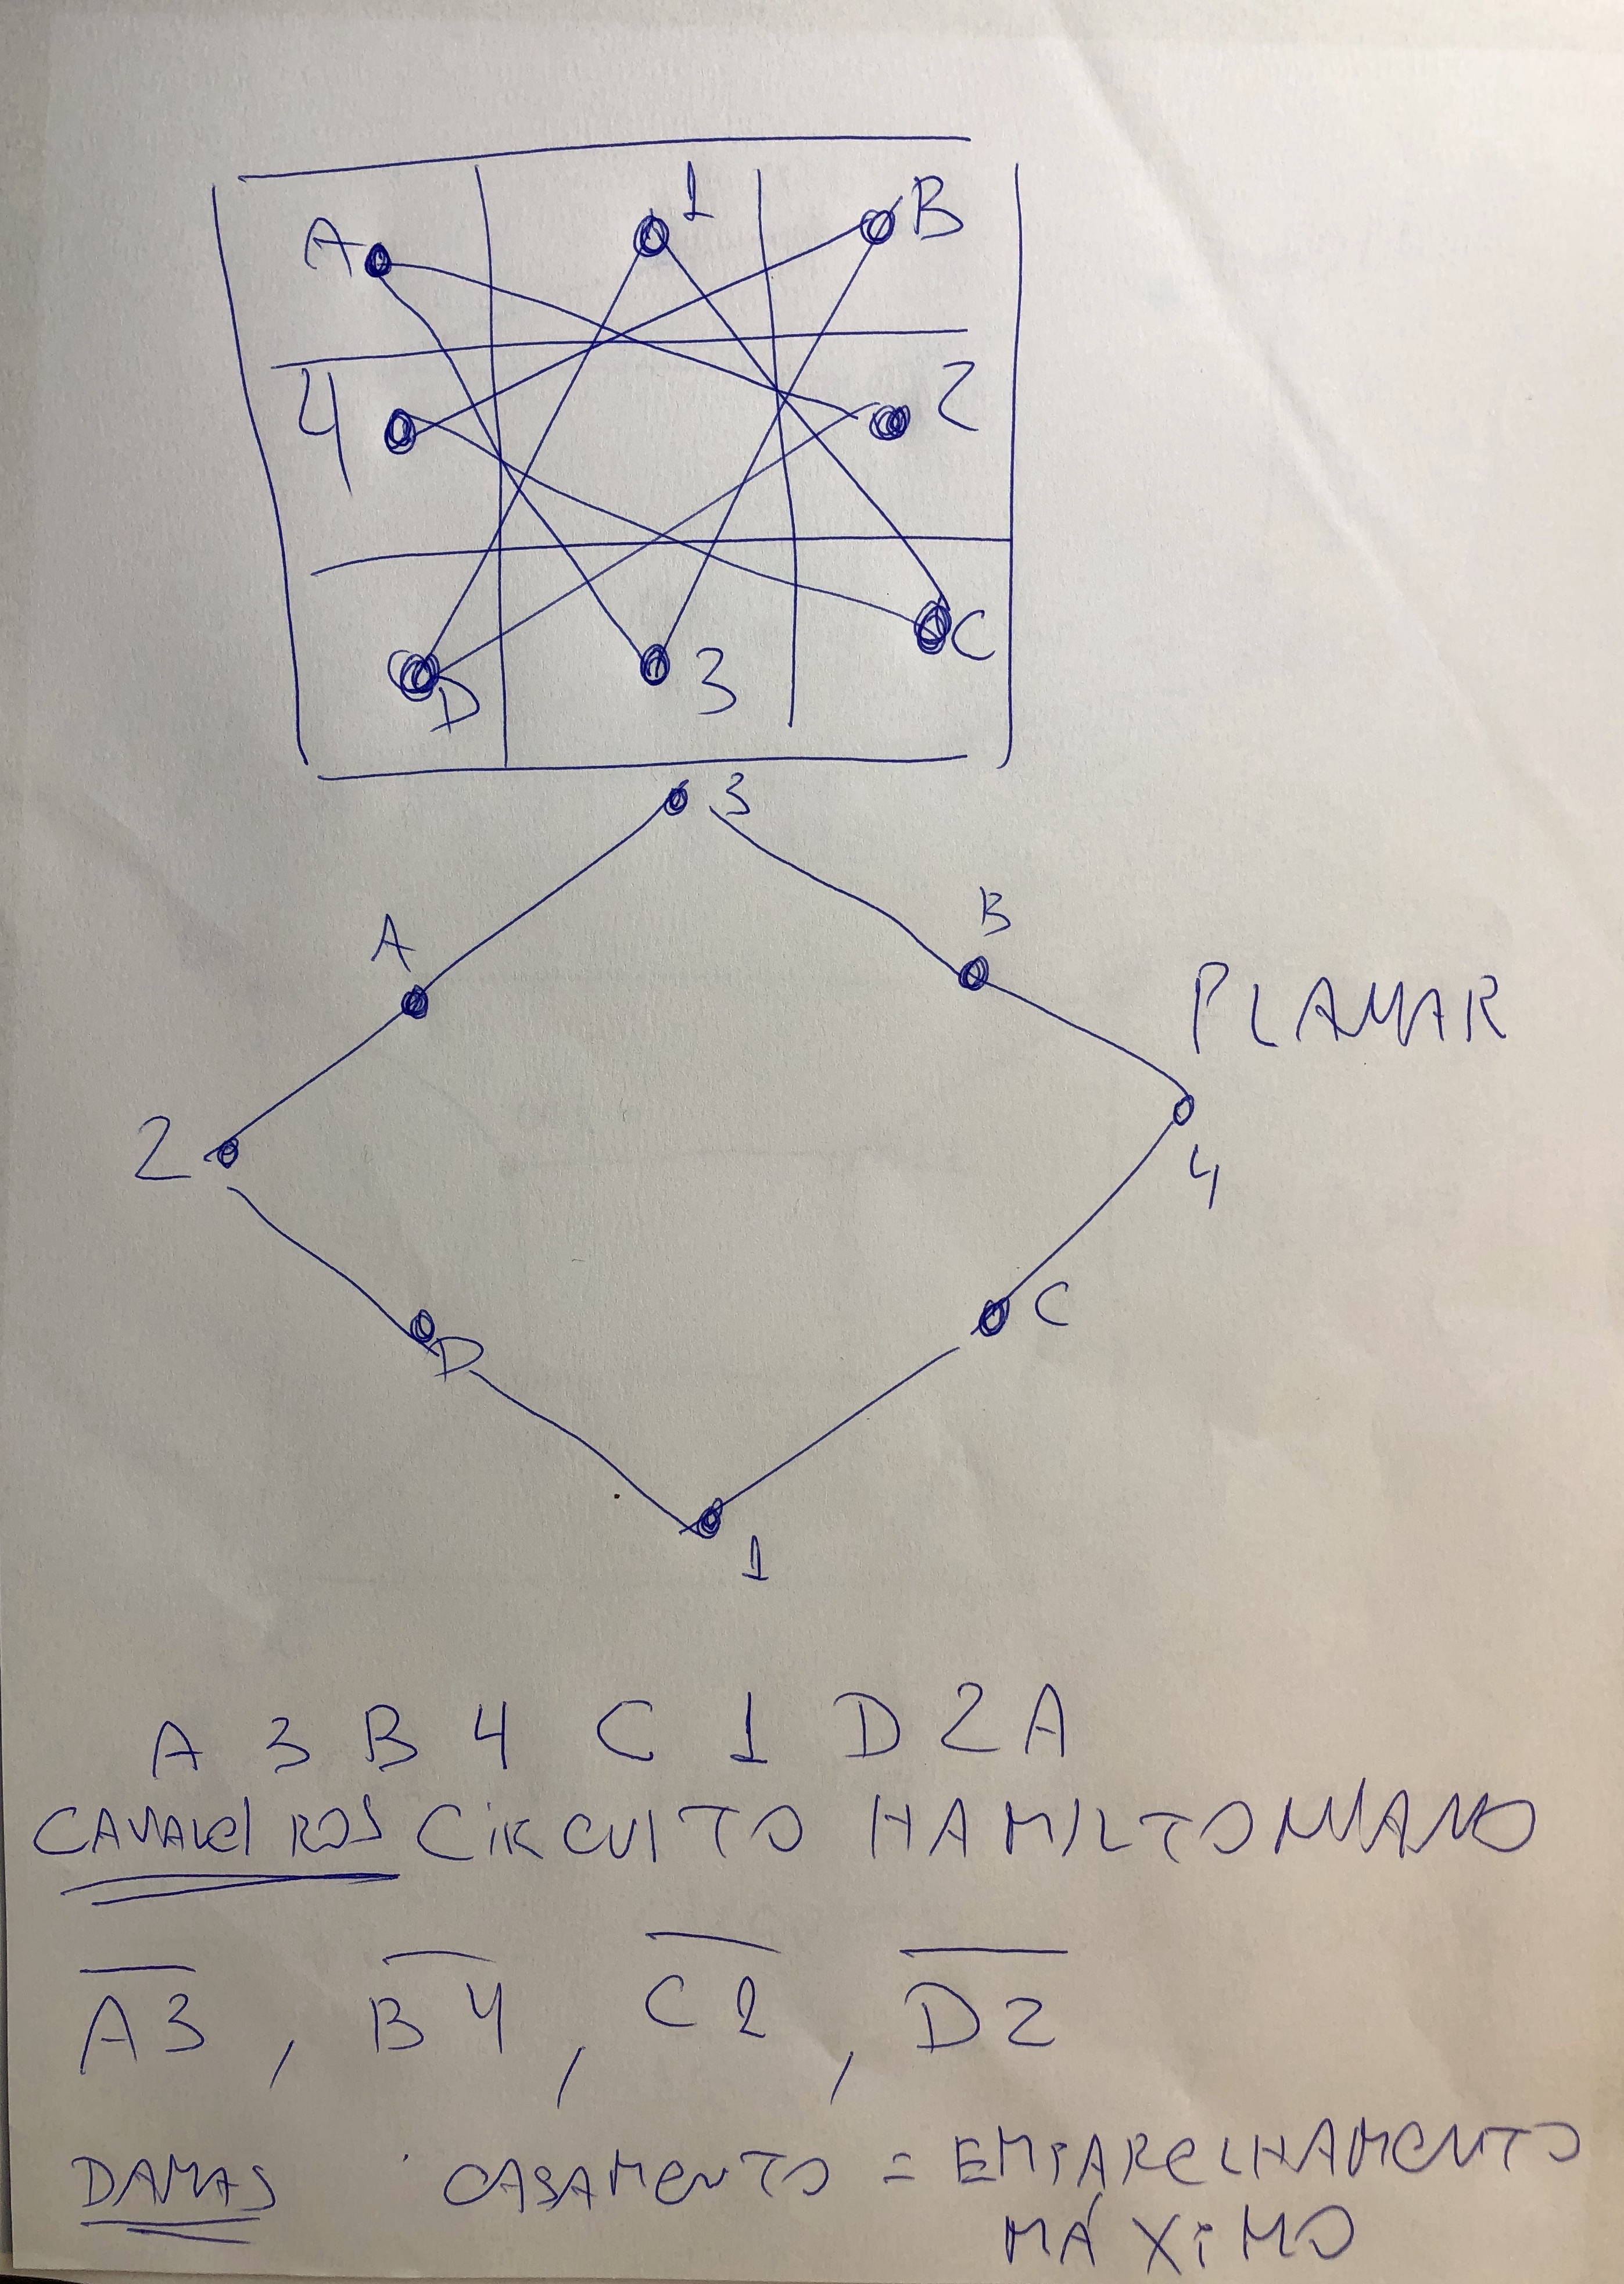 A 1 B
4 2
D 3 C
3
A B
PLANAR
2 4
D C
1
A 3 B 4 C 1 D 2 A
CAVALEIROS CIRCUITO HAMILTONIANO
A3, B4, C2, D2
DAMAS CASAMENTO = EMPARELHAMENTO
MÁXIMO